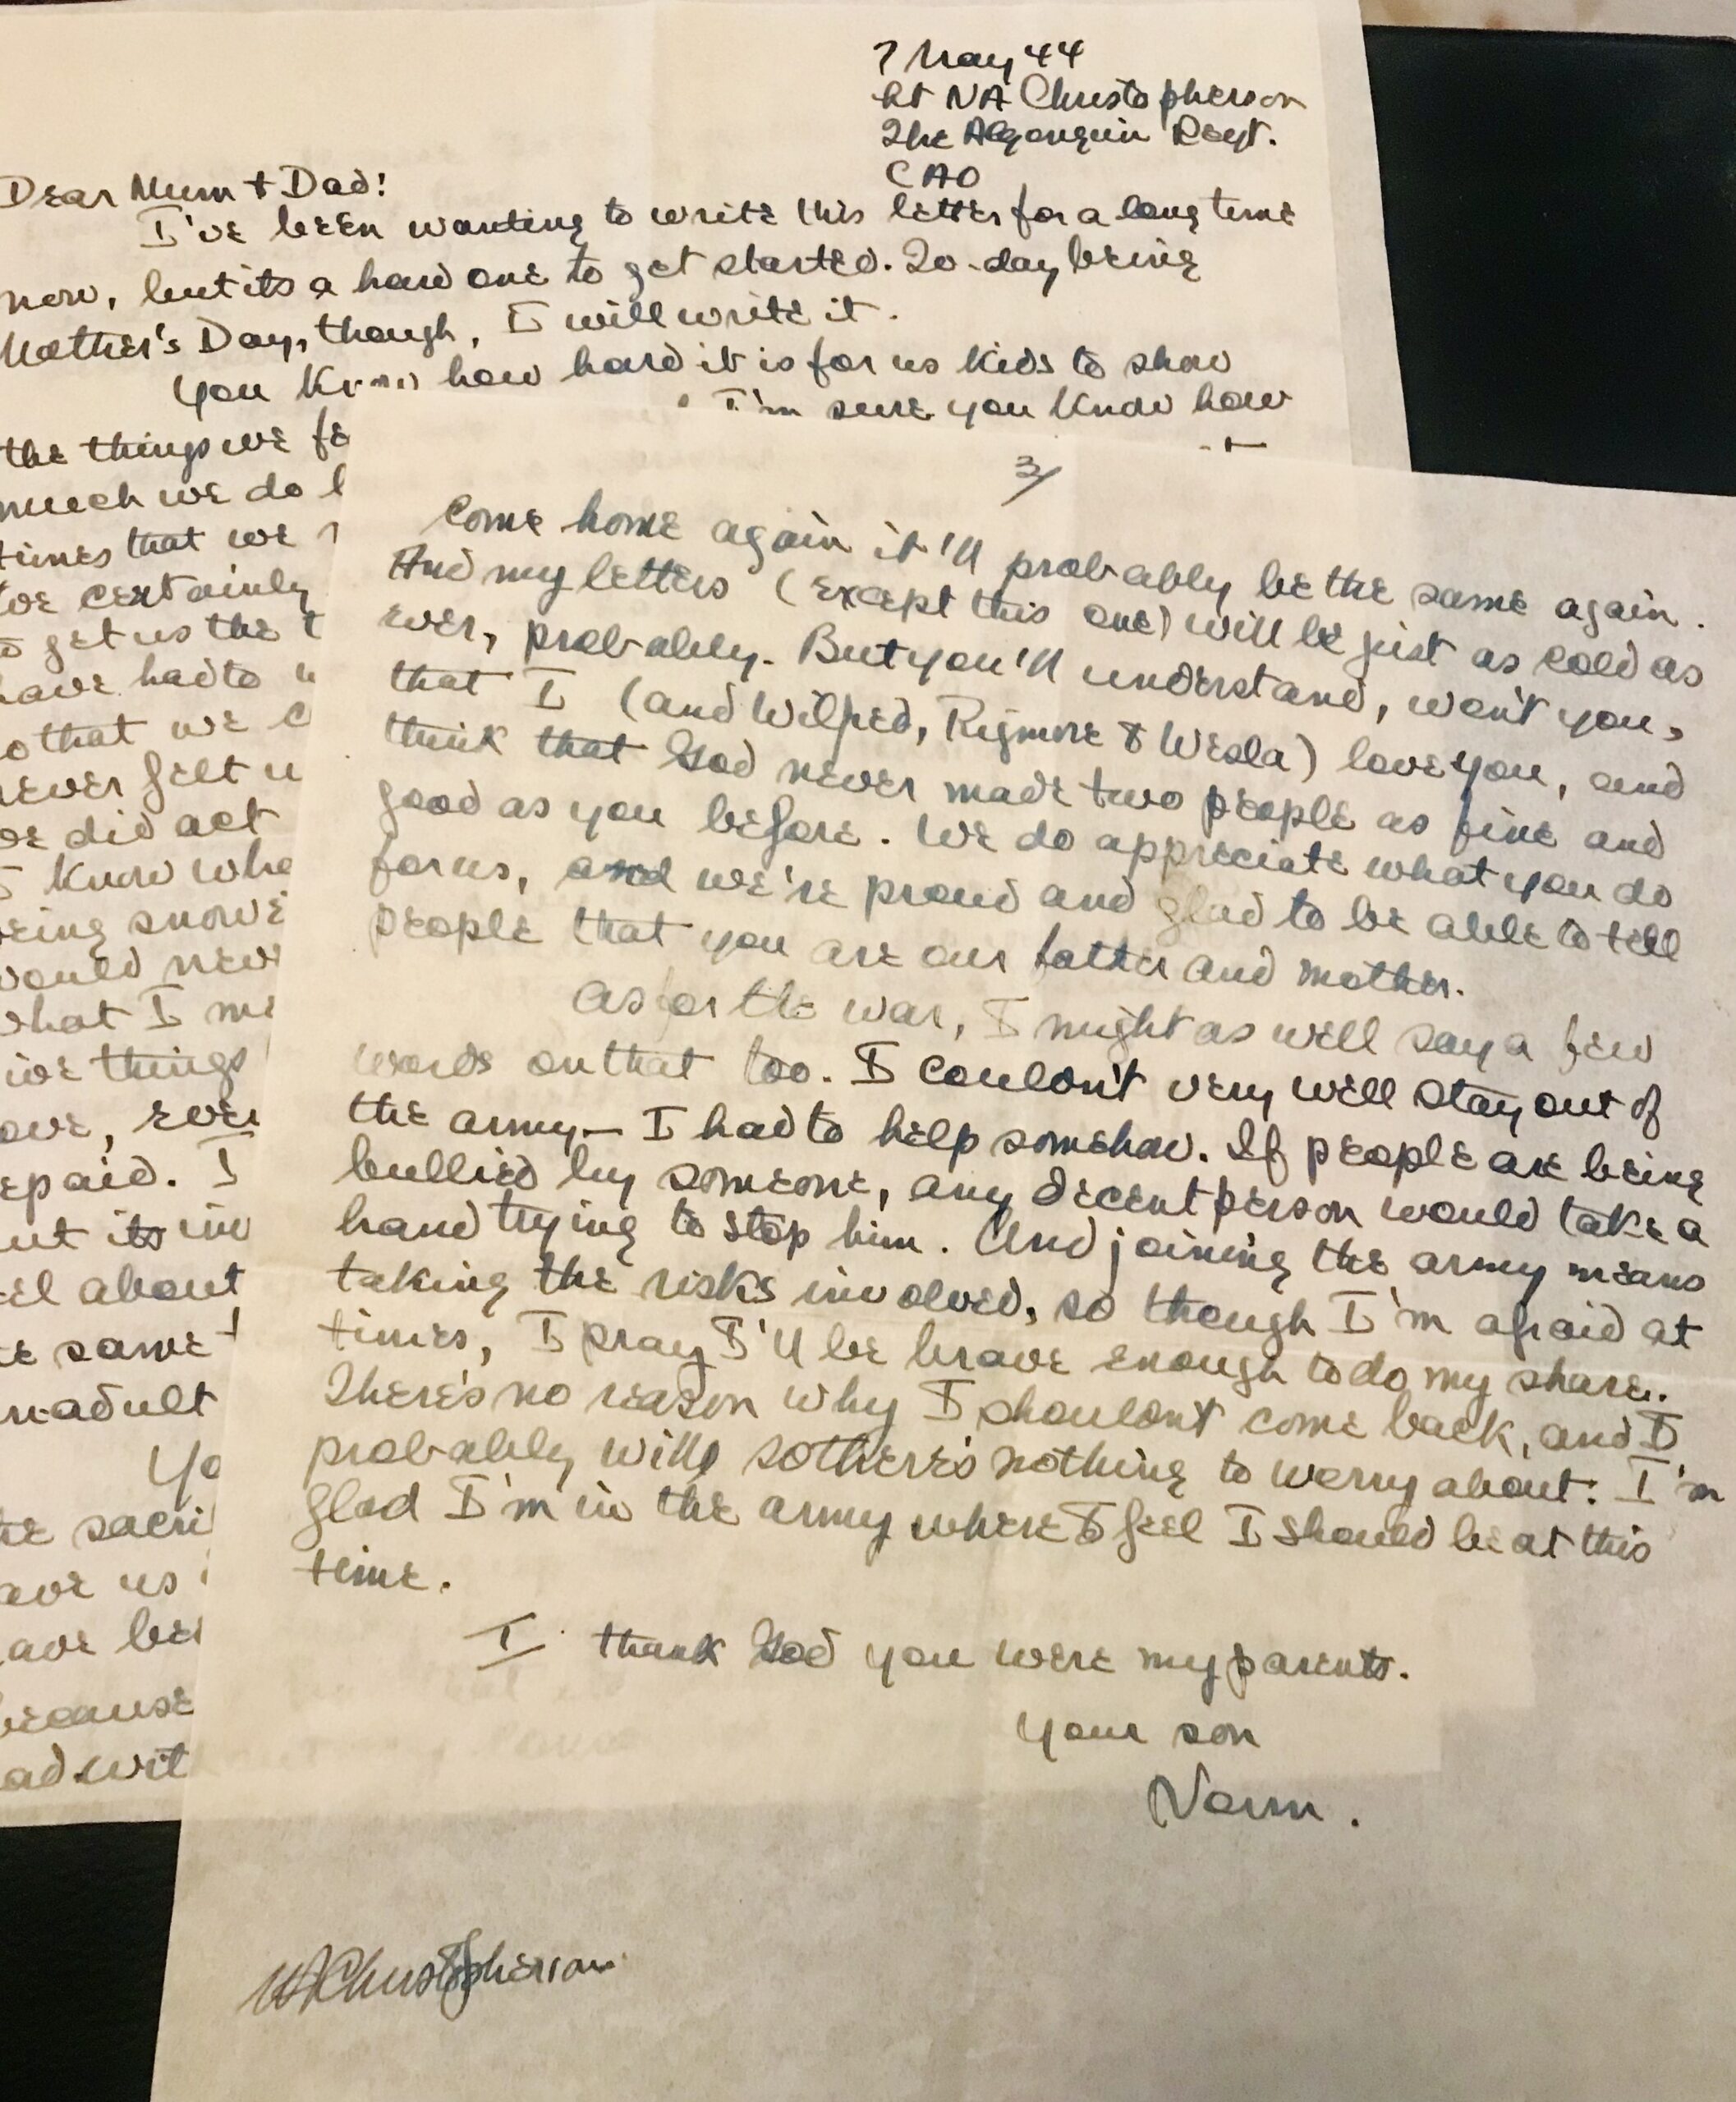 7 May 44
Lt NA Christopherson
The Algonquin Regt.
CAO
Dear Mum + Dad!
I've been wanting to write this letter for a long time
now, but its a hard one to get started. To-day being
Mother's Day, though, I will write it.
You know how hard it is for us kids to show
the things we fe
I'm sure you know how
much we do
times that we
we certainly
to get us the t
have had to
so that we c
never felt
we did act
I know wha
being snowe
would neve
what I me
ive things
ove, even
epaid. I
ut its
el about
e same t
adult
Yo
he sacri
ave us
ave be
because
ad wit
3/
come home again it'll probably be the same again.
And my letters (except this one) will be just as cold as
ever, probably. But you'll understand, won't you,
that I (and Wilfred, Rigmore & Wesla) love you, and
think that God never made two people as fine and
good as you before. We do appreciate what you do
for us, and we're proud and glad to be able to tell
people that you are our father and mother.
As for the war, I might as well say a few
words on that too. I couldn't very well stay out of
the army — I had to help somehow. If people are being
bullied by someone, any decent person would take a
hand trying to stop him. And joining the army means
taking the risks involved, so though I'm afraid at
times, I pray I'll be brave enough to do my share.
There's no reason why I shouldn't come back, and I
probably will, so there's nothing to worry about. I'm
glad I'm in the army where I feel I should be at this
time.
I thank God you were my parents.
Your son
Norm.
NAChristopherson